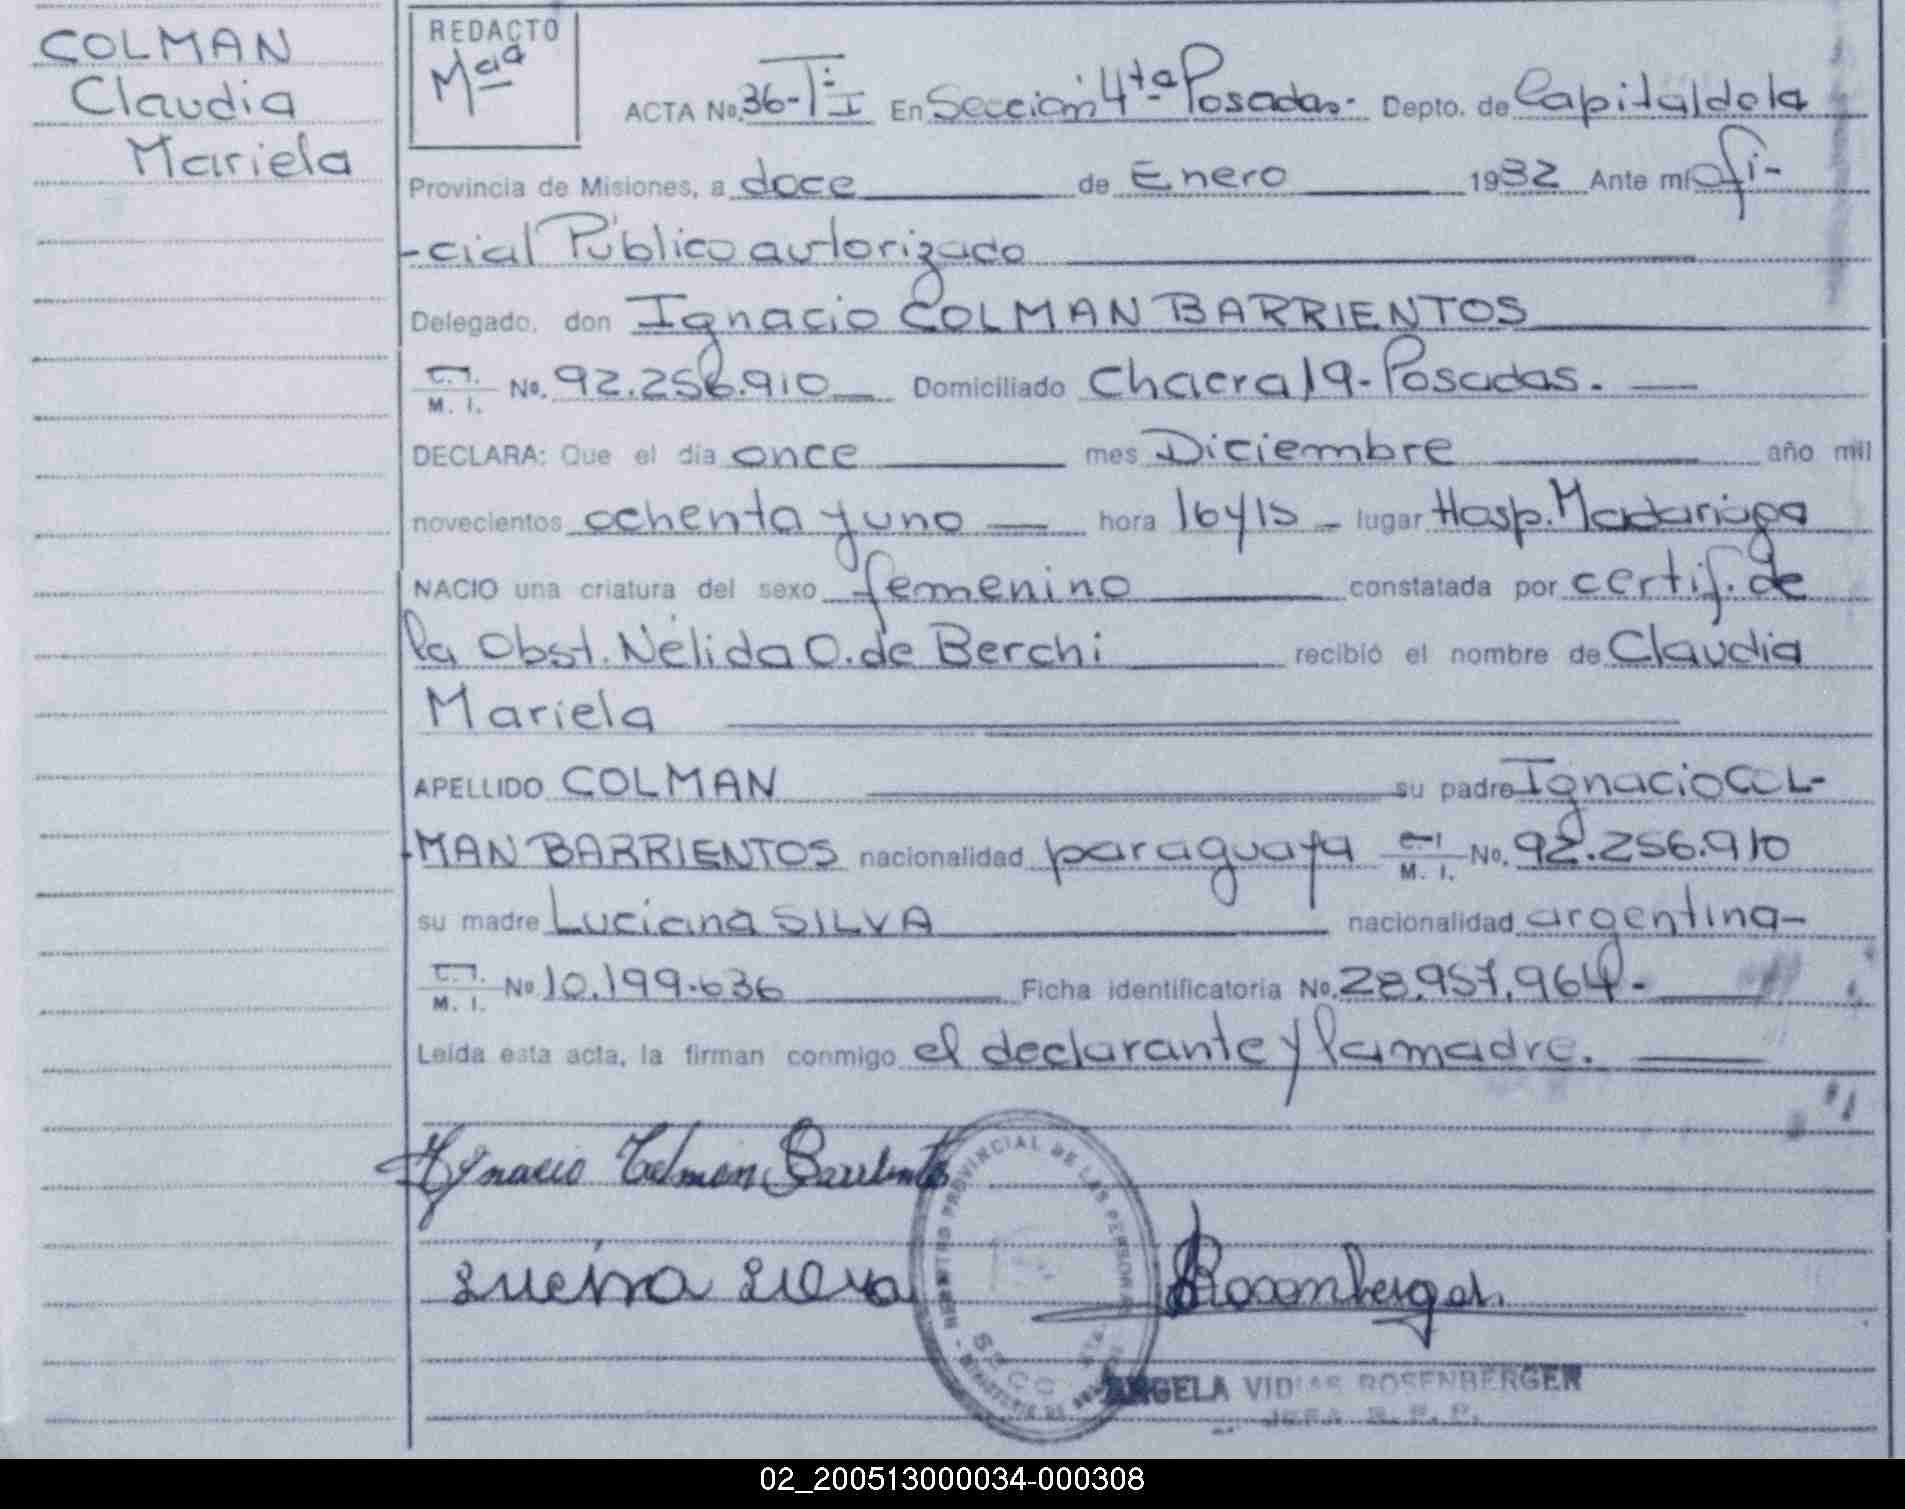 COLMAN
Claudia
Mariela
REDACTO
Mª
ACTA No. 36-Tº I En Sección 4ta Posadas. Depto. de Capital de la
Provincia de Misiones, a doce de Enero 1982 Ante mí ofi-
-cial Público autorizado
Delegado, don Ignacio COLMAN BARRIENTOS
C.I. M. I. No. 92.256.910 Domiciliado Chacra 19-Posadas.
DECLARA: Que el día once mes Diciembre año mil
novecientos ochenta y uno hora 16 y 15 lugar Hosp. Madariaga
NACIO una criatura del sexo femenino constatada por certif. de
la Obst. Nélida O. de Berchi recibió el nombre de Claudia
Mariela
APELLIDO COLMAN su padre Ignacio COL-
MAN BARRIENTOS nacionalidad paraguaya C.I. M. I. No. 92.256.910
su madre Luciana SILVA nacionalidad argentina-
C.I. M. I. No 10.199.636 Ficha identificatoria No. 28.957.964.-
Leída esta acta, la firman conmigo el declarante y la madre.
Ignacio Colman Barrientos
PROVINCIAL DE LAS PERSONAS
Silva
Rosenberger
ANGELA ROSENBERGER
JEFA R. P. P.
02_200513000034-000308